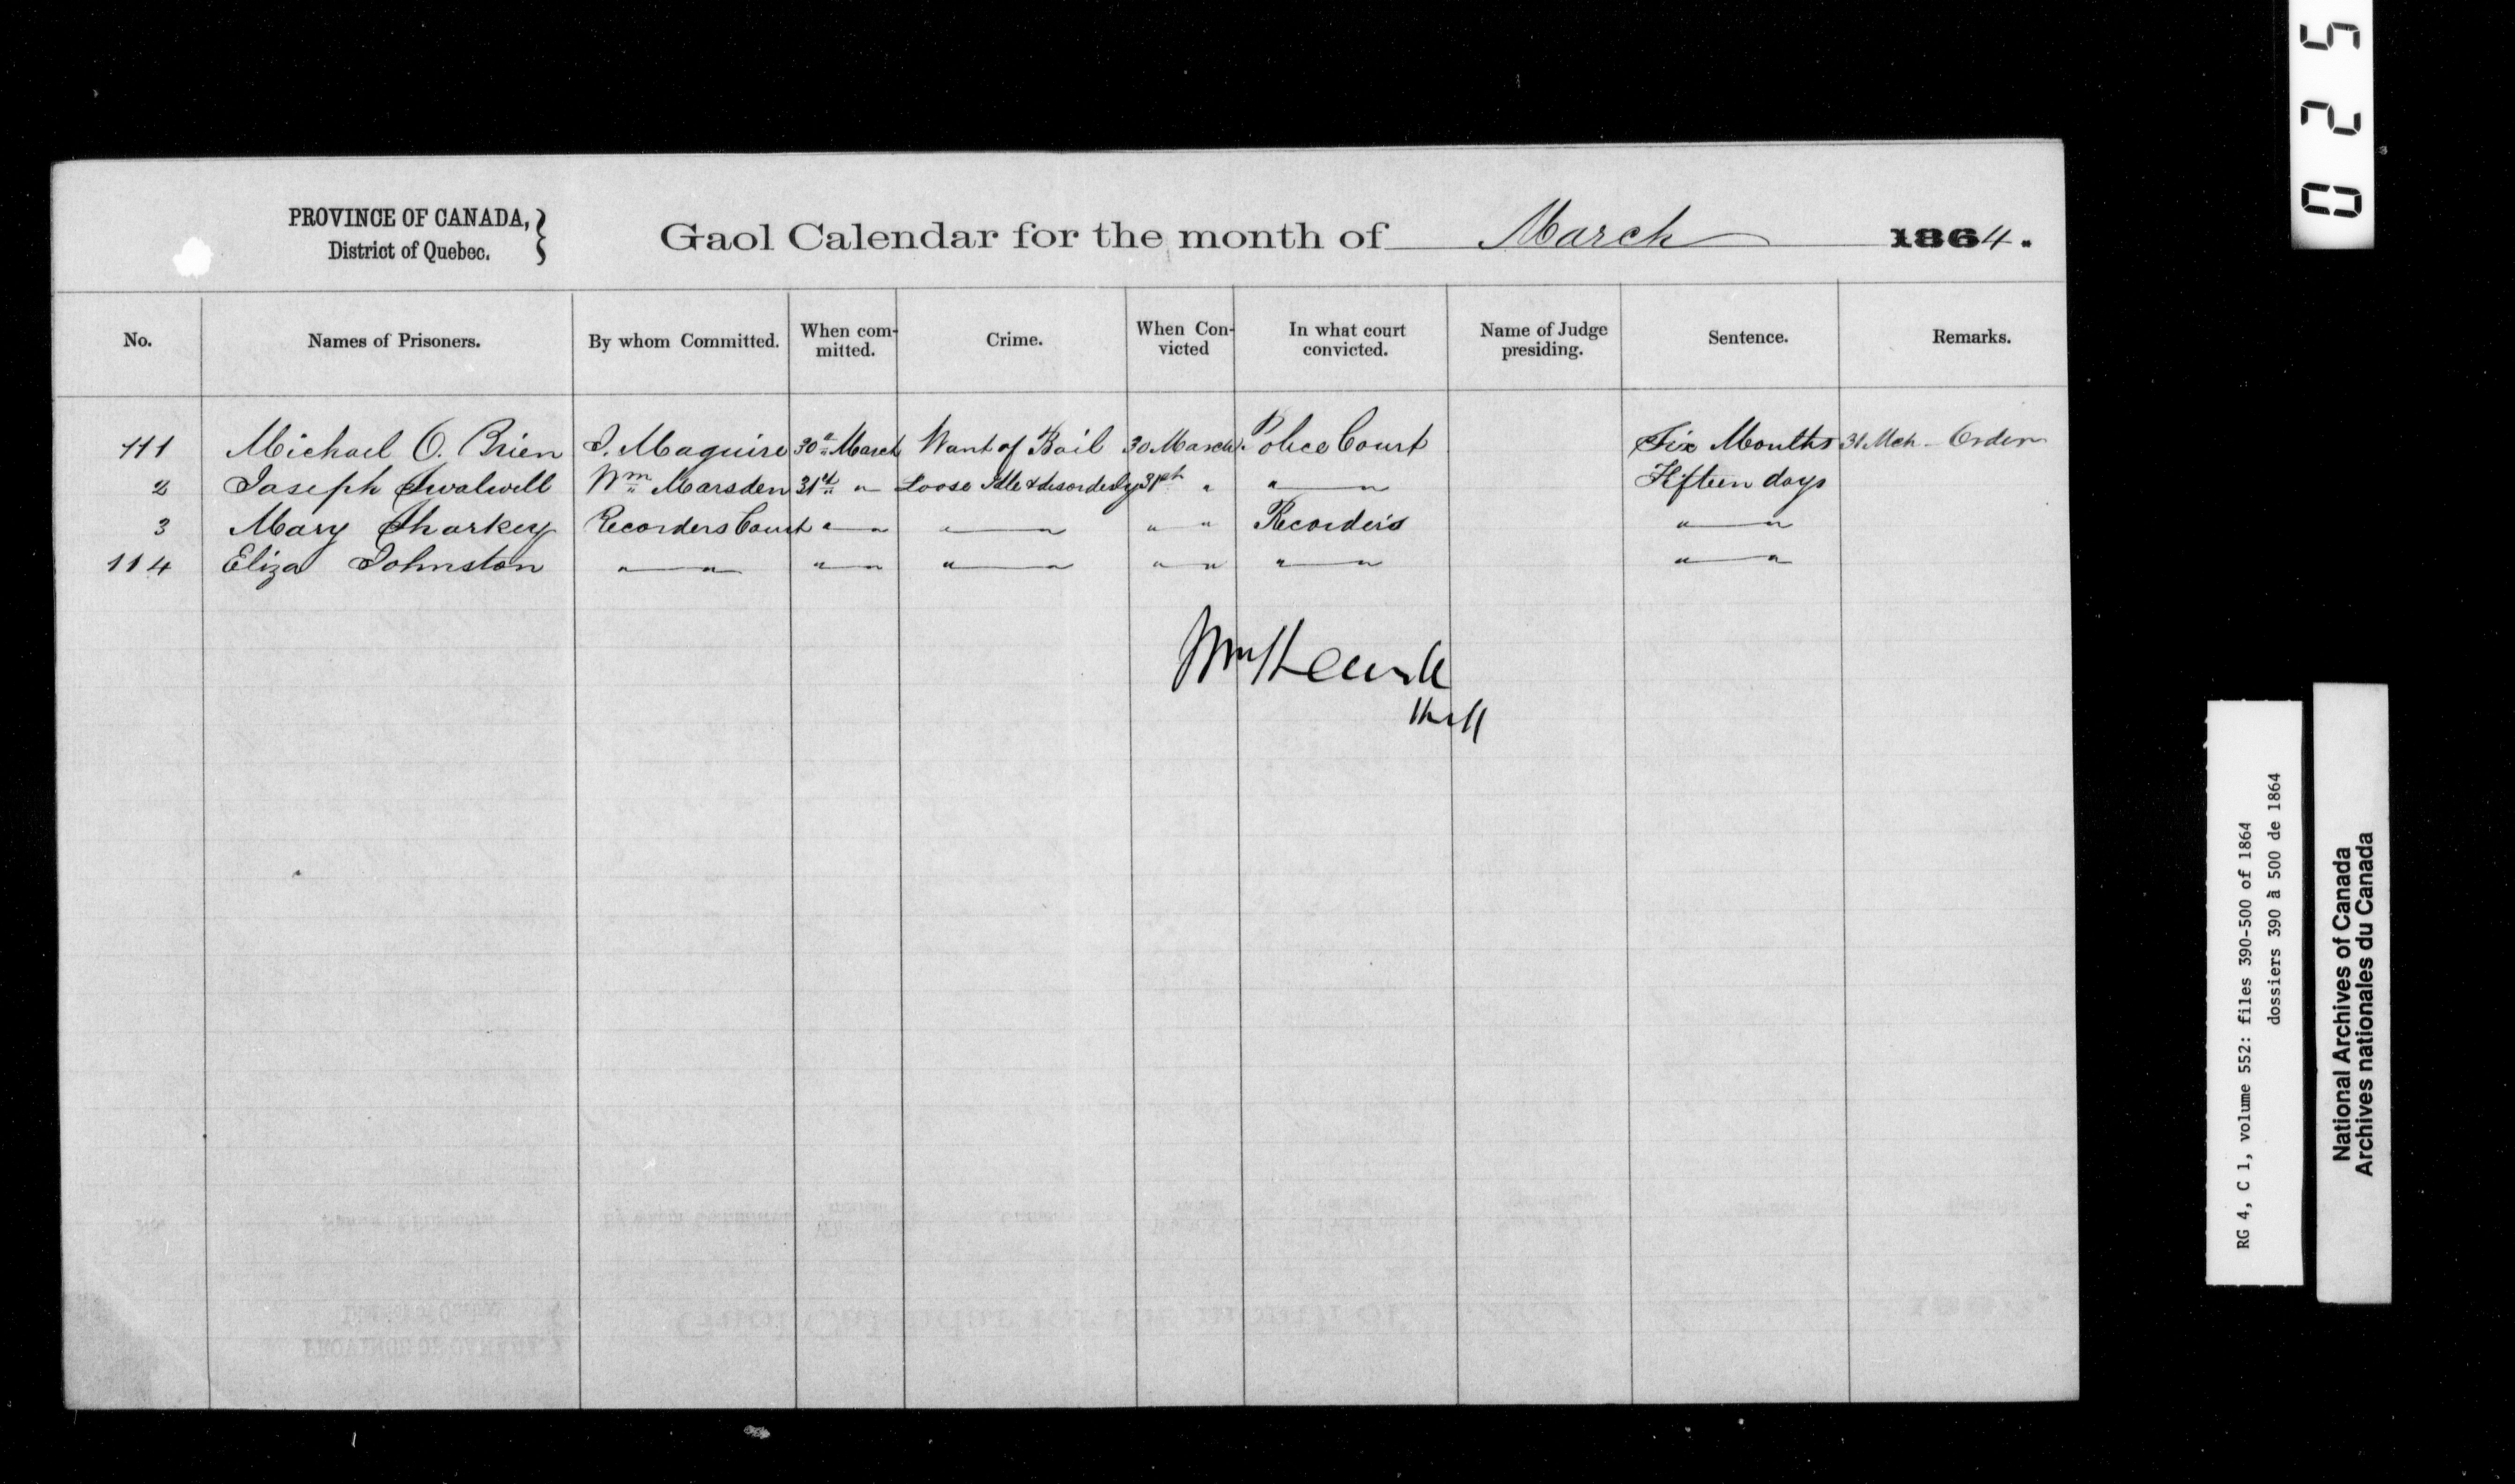 PROVINCE OF CANADA,
District of Quebec.
Gaol Calendar for the month of March 1864.
No. Names of Prisoners. By whom Committed. When com-mitted. Crime. When Con-victed In what court convicted. Name of Judge presiding. Sentence. Remarks.
111 Michael O. Brien J. Maguire 30" March Want of Bail 30 March Police Court Six Months 31 Mch - Order
2 Joseph Swalwell Wm Marsden 31st " Loose Idle & disorderly 31st " " — " Fifteen days
3 Mary Sharkey Recorders Court " — " " — " " " Recorder's " — "
114 Eliza Johnston " — " " — " " — " " " " — " " — "
025
RG 4, C 1, volume 552: files 390-500 of 1864
dossiers 390 à 500 de 1864
National Archives of Canada
Archives nationales du Canada